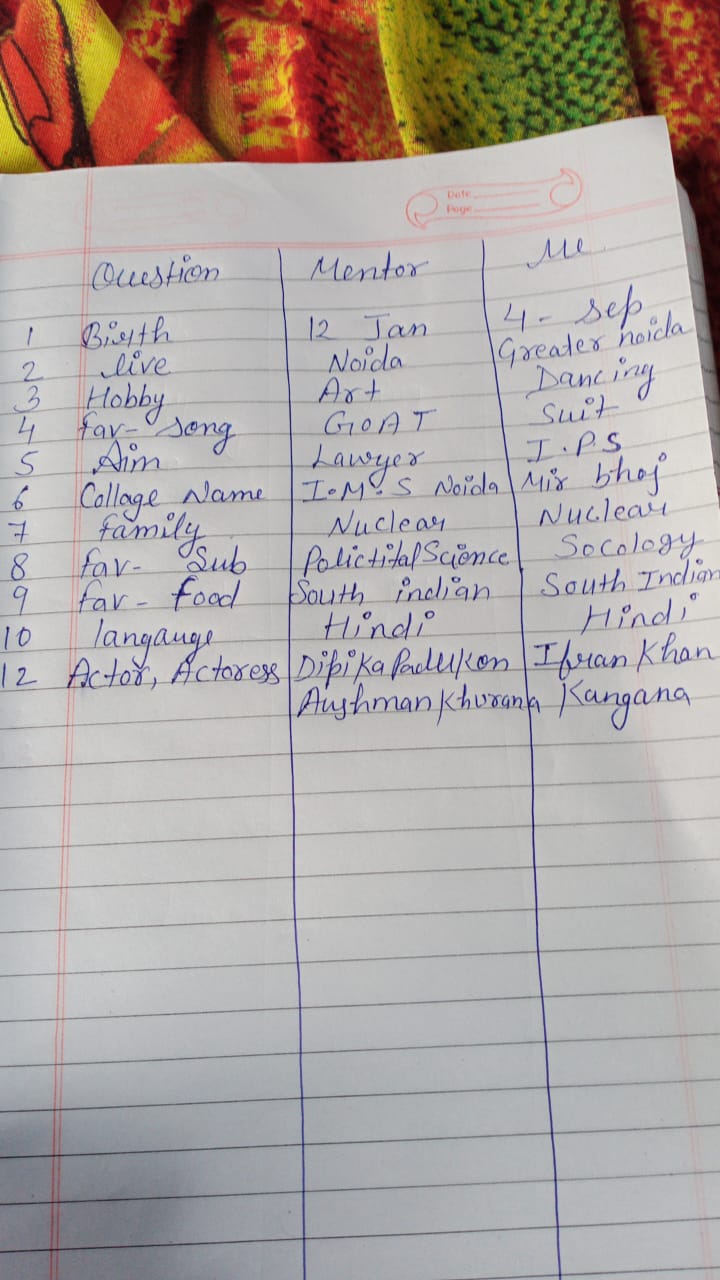 Date
Page
Question Mentor Me
1 Birth 12 Jan 4- Sep
2 live Noida Greater noida
3 Hobby Art Dancing
4 fav- song GOAT Suit
5 Aim Lawyer I.P.S
6 Collage Name I.M.S Noida Mir bhoj
7 family Nuclear Nuclear
8 fav- Sub Polictital Science Socology
9 fav- food South indian South Indian
10 langauge Hindi Hindi
12 Actor, Actoress Dipika Padukon Ifran Khan
Aushman Khurana Kangana